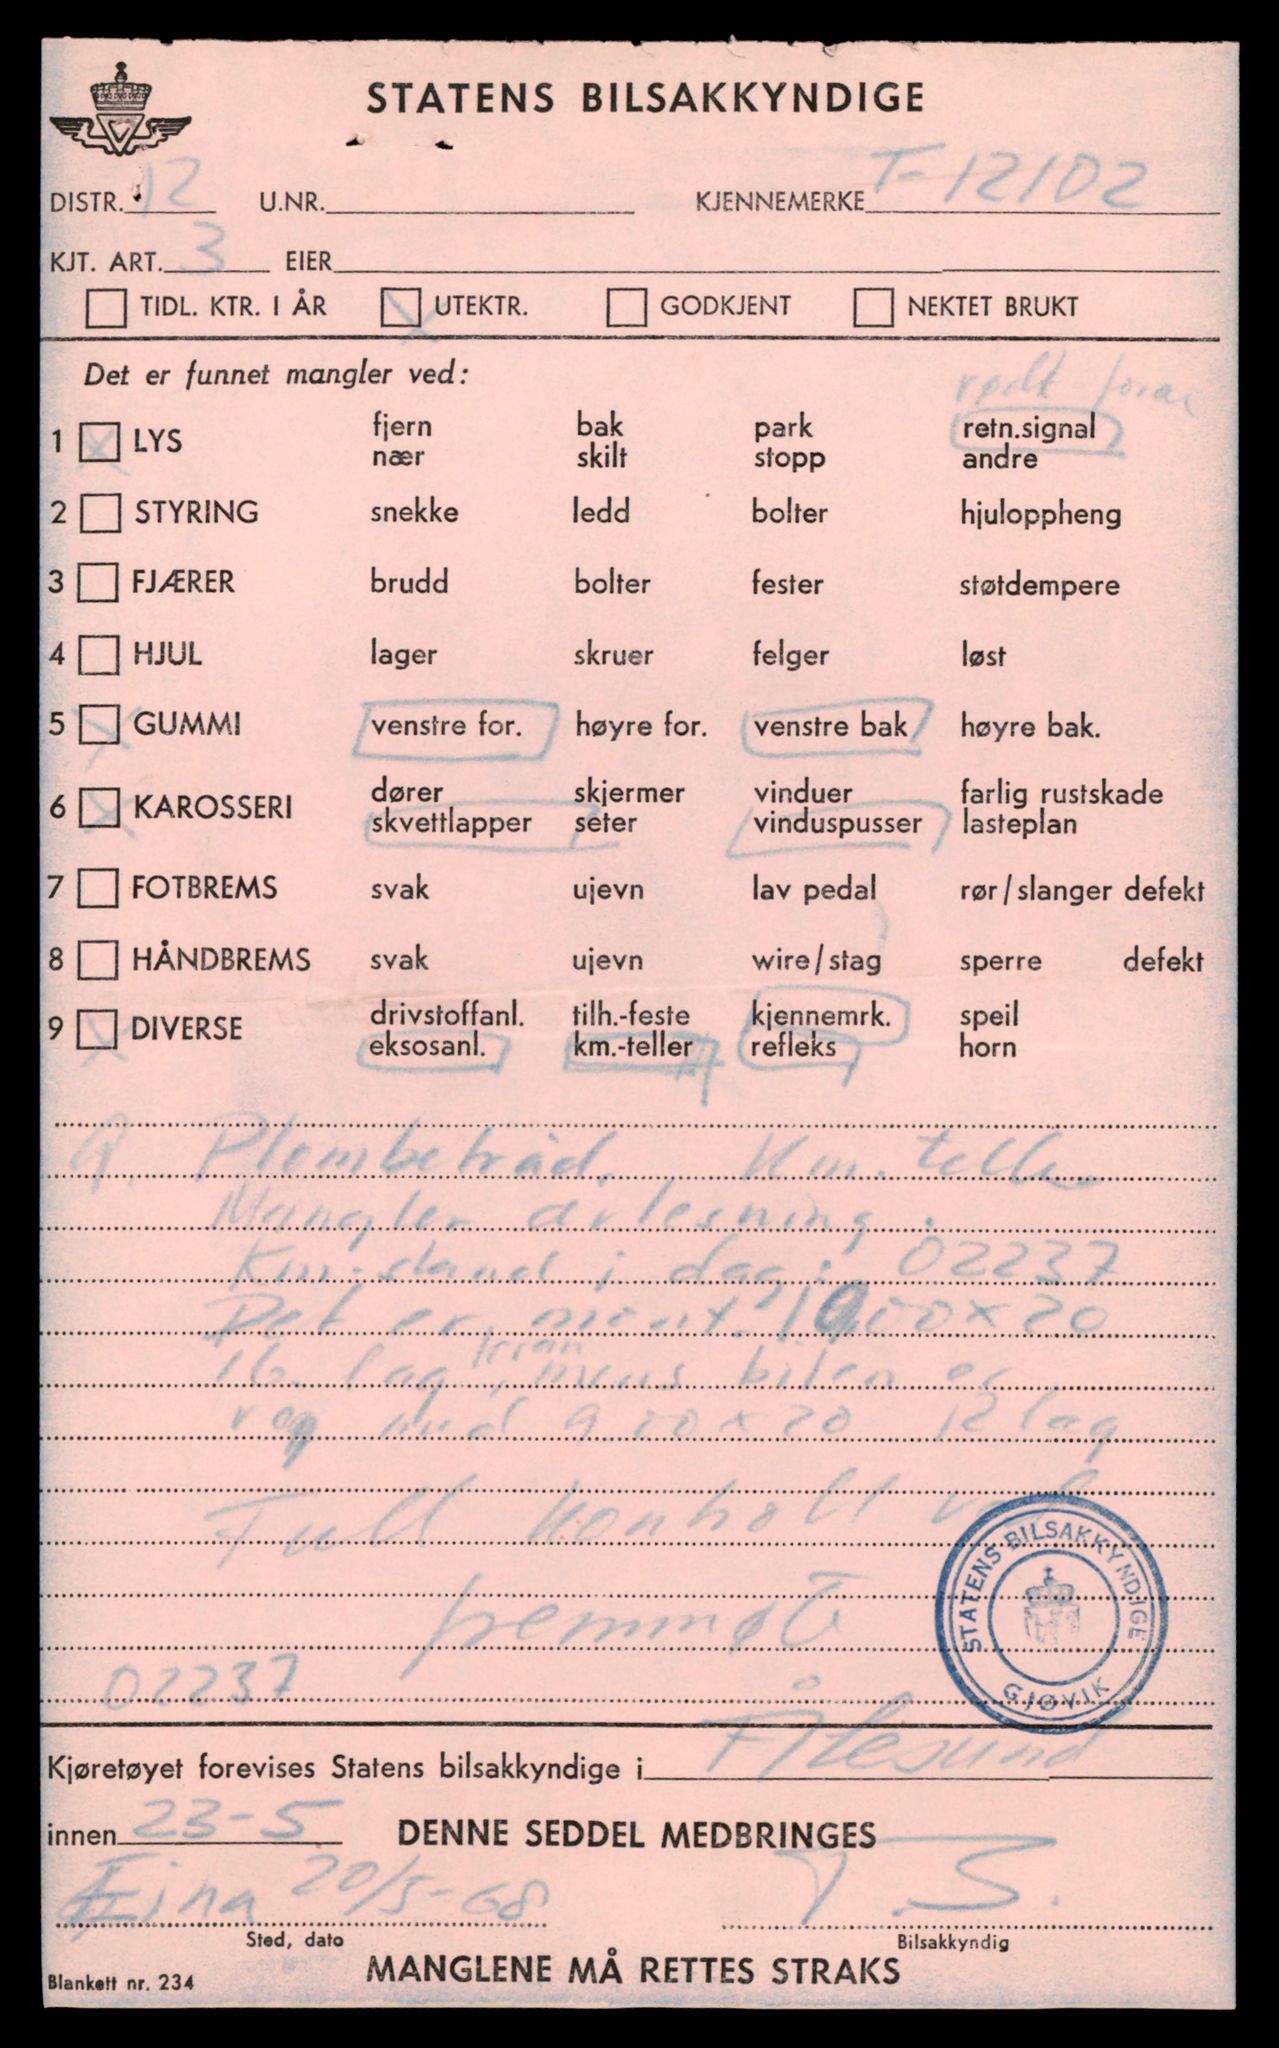 STATENS BILSAKKYNDIGE
DISTR. 12 U.NR. KJENNEMERKE T-12102
KJT. ART. 3 EIER
TIDL. KTR. I ÅR UTEKTR. GODKJENT NEKTET BRUKT
Det er funnet mangler ved: rødt foran
1 LYS fjern bak park retn.signal
nær skilt stopp andre
2 STYRING snekke ledd bolter hjuloppheng
3 FJÆRER brudd bolter fester støtdempere
4 HJUL lager skruer felger løst
5 GUMMI venstre for. høyre for. venstre bak høyre bak.
6 KAROSSERI dører skjermer vinduer farlig rustskade
skvettlapper seter vinduspusser lasteplan
7 FOTBREMS svak ujevn lav pedal rør/slanger defekt
8 HÅNDBREMS svak ujevn wire/stag sperre defekt
9 DIVERSE drivstoffanl. tilh.-feste kjennemrk. speil
eksosanl. km.-teller refleks horn
9. Plombetråd. Km.teller
Mangler avlesning.
Km.stand i dag: 02237
Det er mont. 1000x20
16 lag foran, mens bilen er
reg med 9.00x20 12 lag
Full kontroll ved
fremmøte
STATENS BILSAKKYNDIGE
GJØVIK
02237
Kjøretøyet forevises Statens bilsakkyndige i Ålesund
innen 23-5 DENNE SEDDEL MEDBRINGES
Eina 20/5-68
Sted, dato Bilsakkyndig
Blankett nr. 234 MANGLENE MÅ RETTES STRAKS